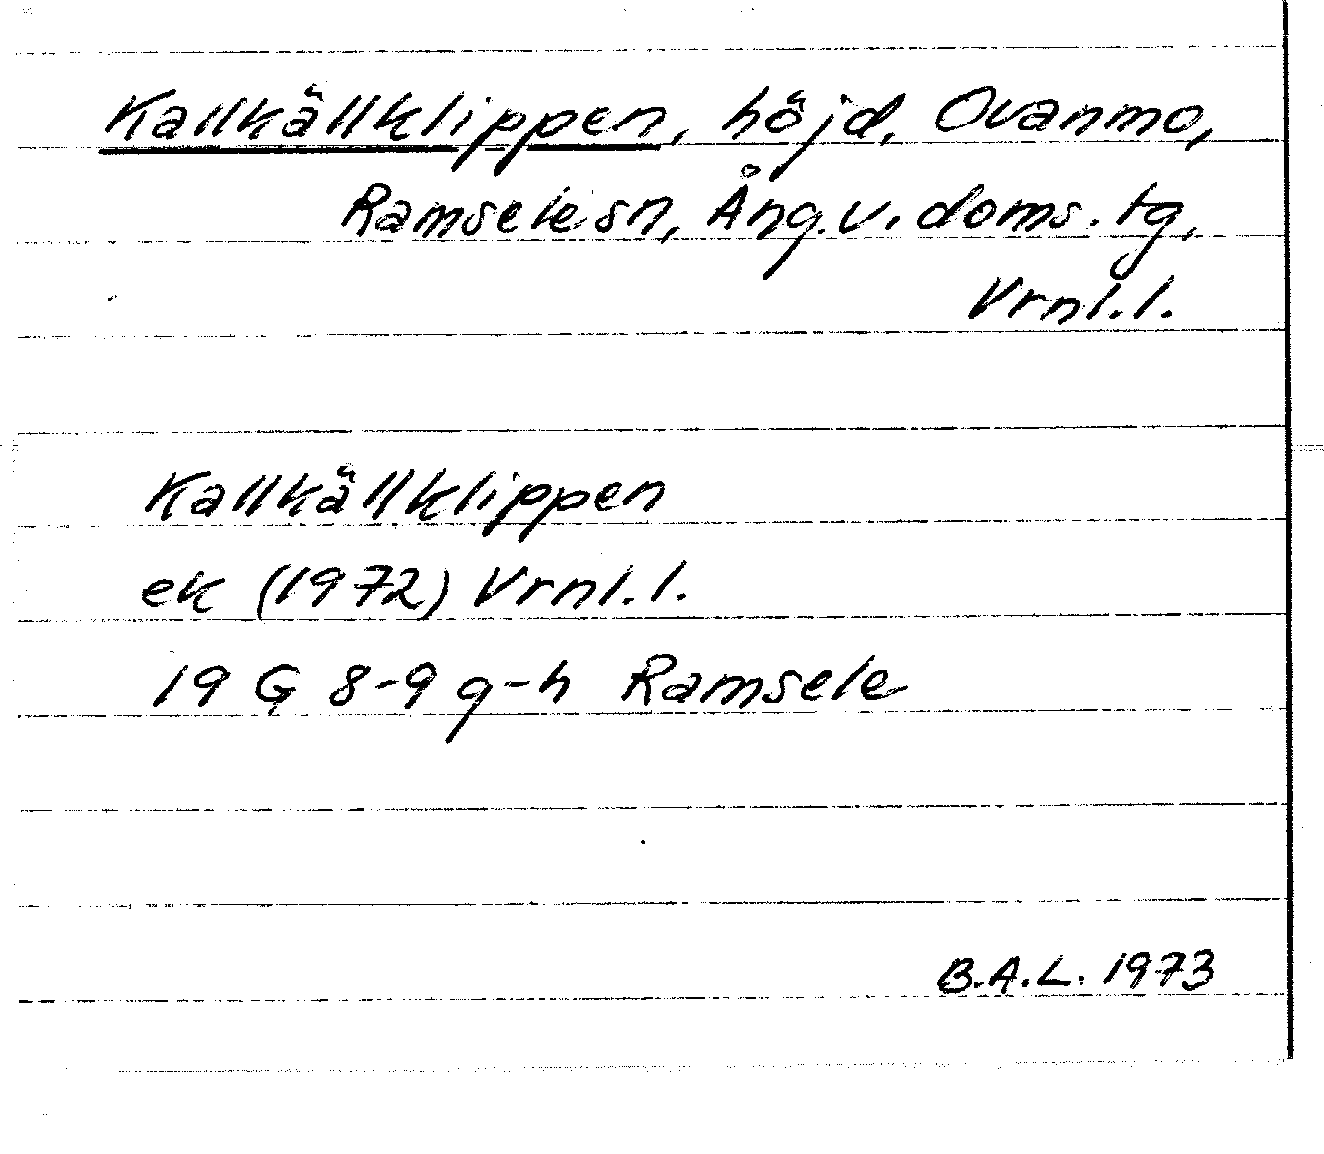 Kallkällklippen, höjd, Ovanmo,
Ramsele sn, Ång.v. doms. tg,
Vrnl.l.
Kallkällklippen
ek (1972) Vrnl.l.
19 G 8-9 g-h Ramsele
B.A.L. 1973